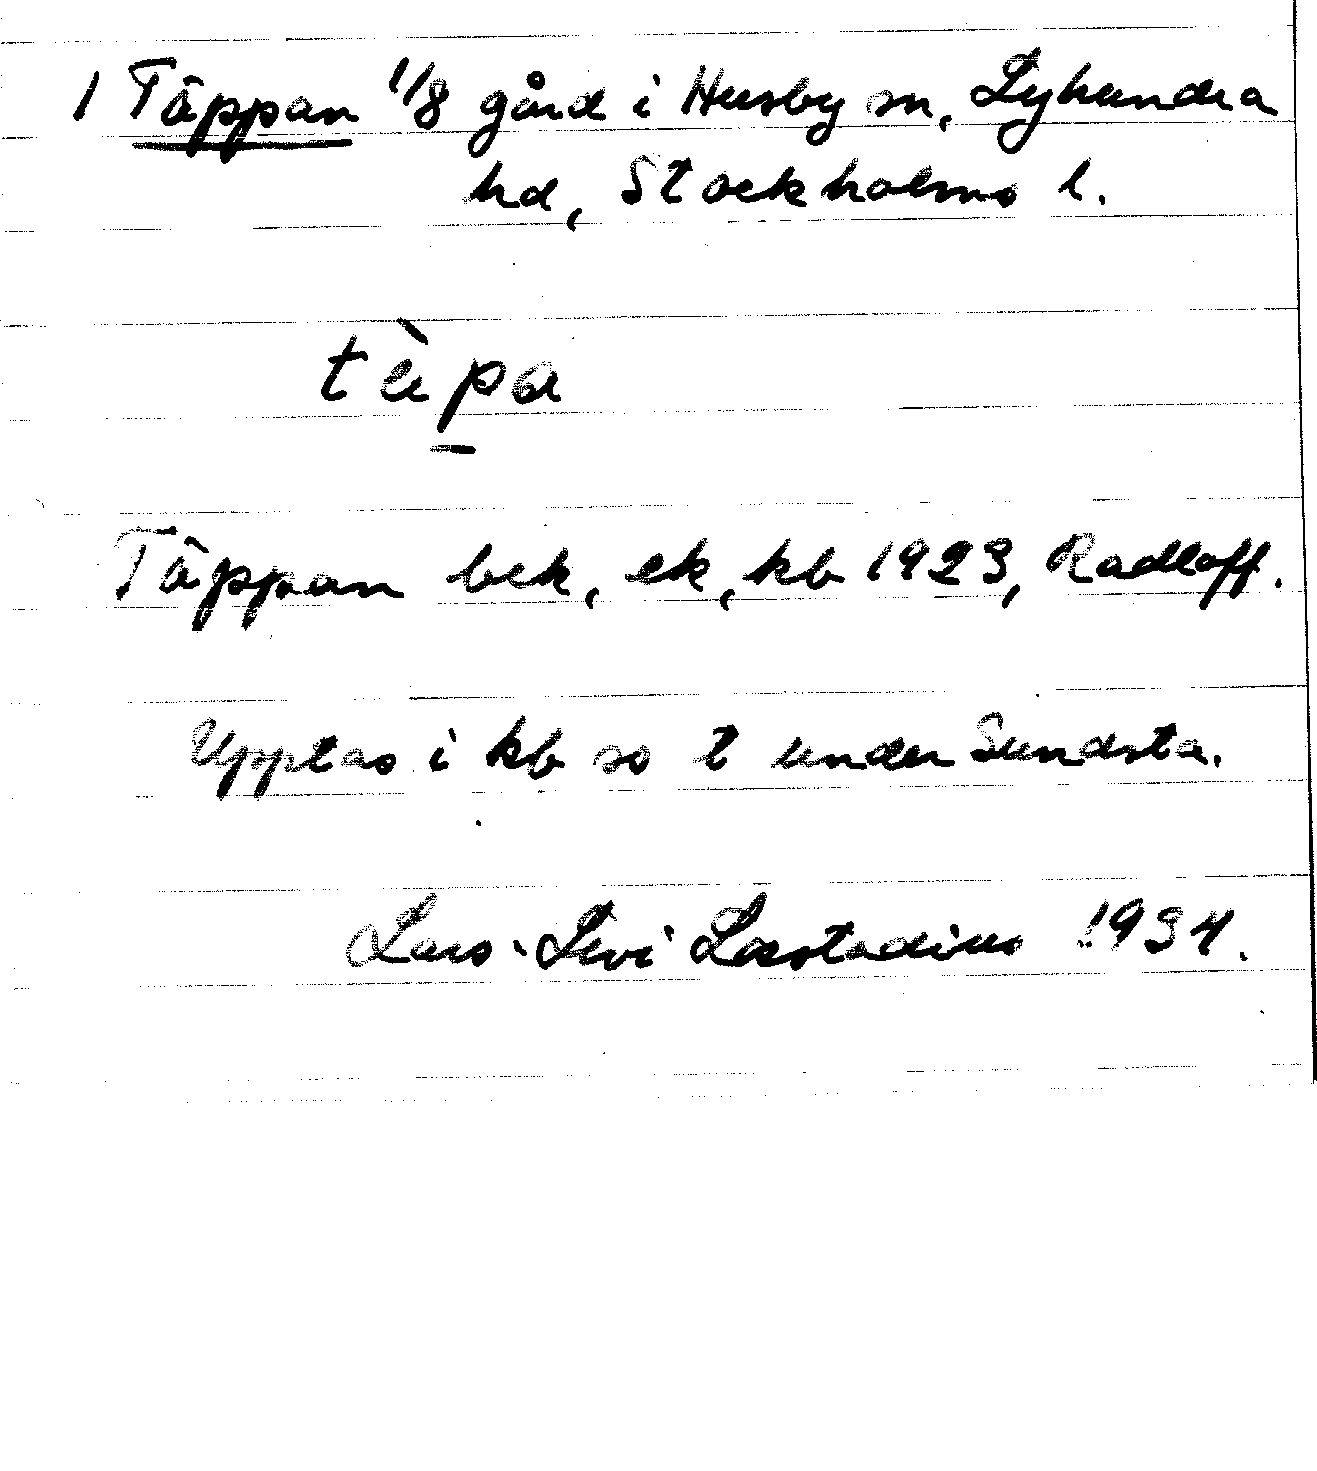 1 Täppan 1/8 gård i Husby sn, Lyhundra
hd, Stockholms l.
tὲpa
Täppan bek, ek, kb 1923, Radloff.
Upptas i kb so t under Sundsta.
Lars-Levi Læstadius 1934.